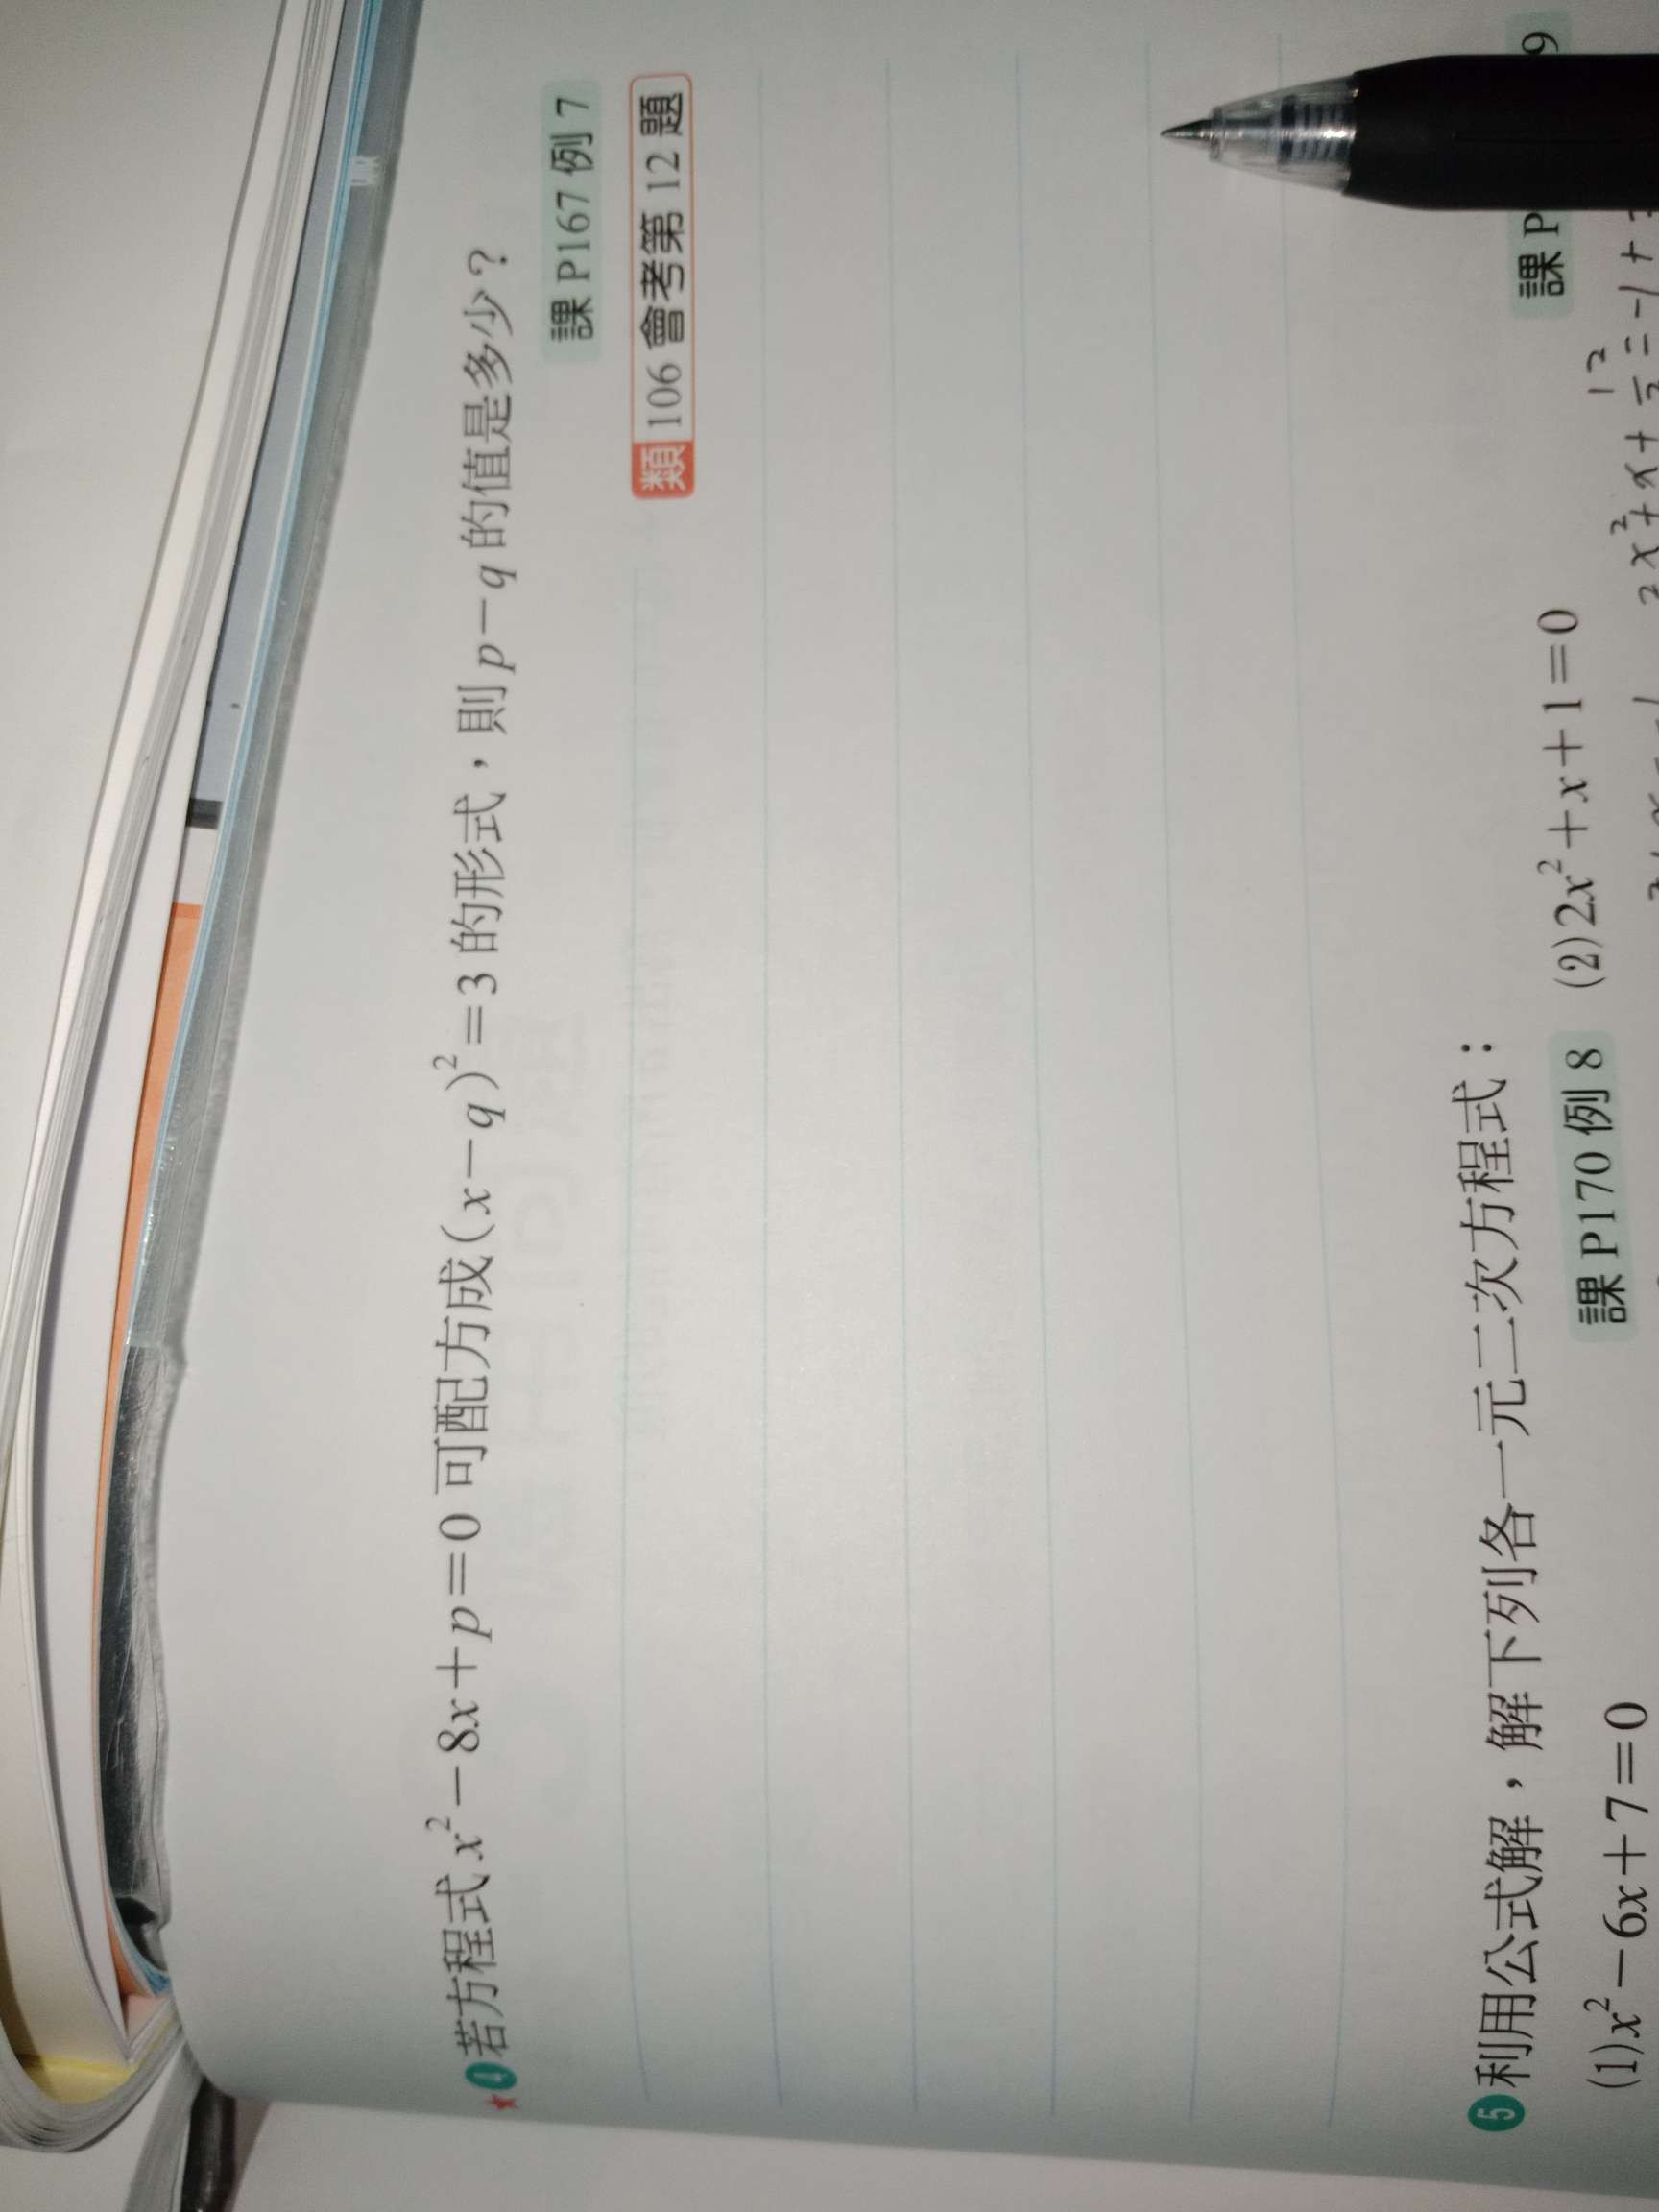 ★4 若方程式 x²−8x+p=0 可配方成(x−q)²=3 的形式，則 p−q 的值是多少？
課 P167 例 7
類 106 會考第 12 題
5 利用公式解，解下列各一元二次方程式：
課 P170 例 8
課 P
9
(1)x²−6x+7=0
(2)2x²+x+1=0